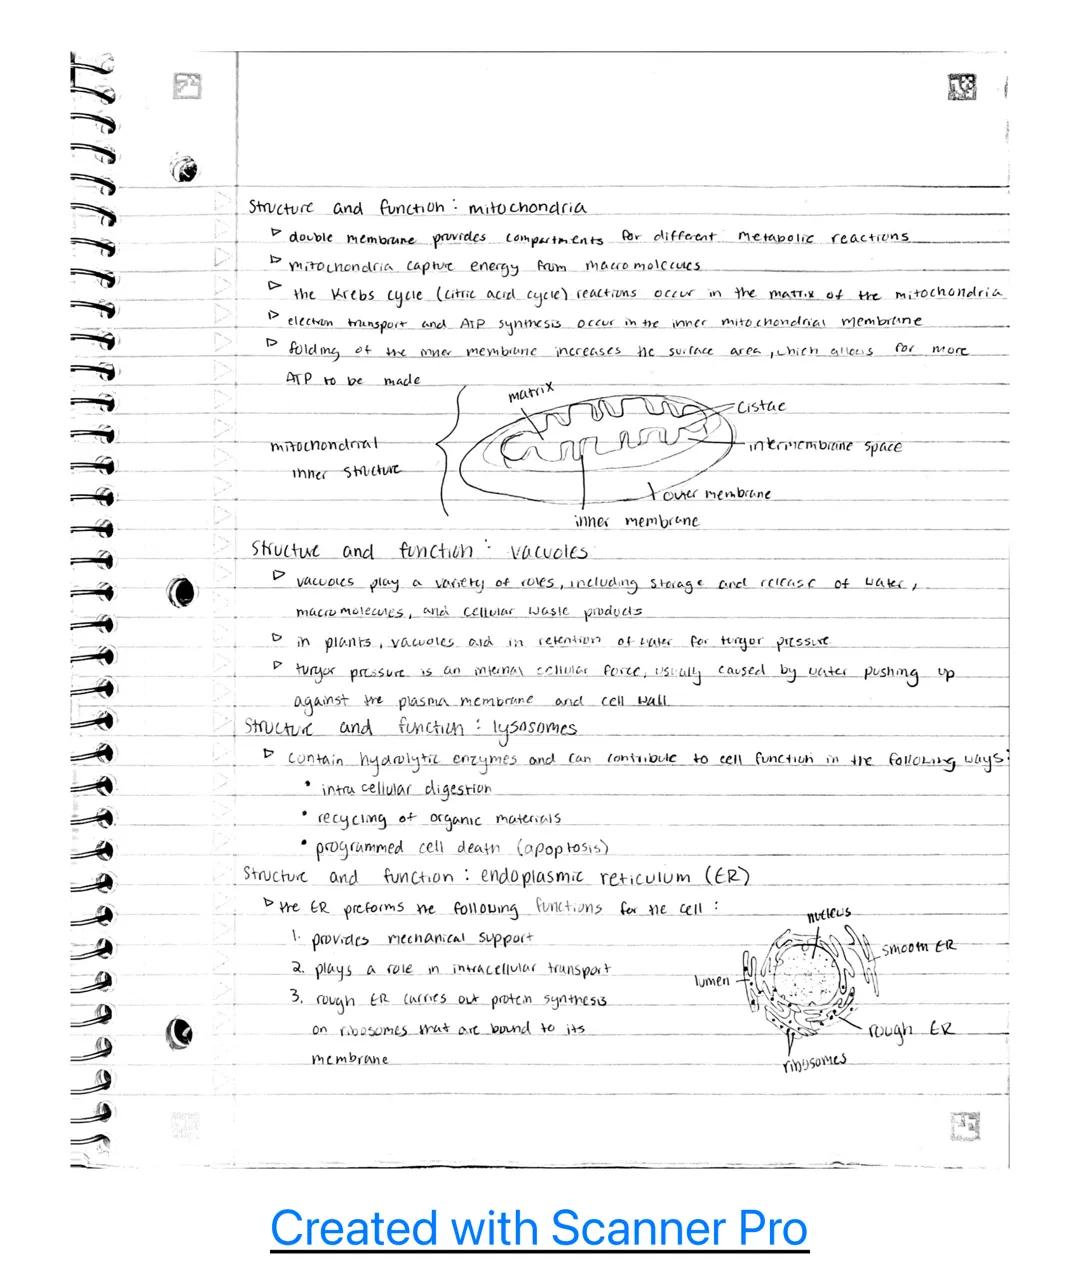 Structure and function : mitochondria
▷ double membrane provides compartments for different metabolic reactions
▷ mitochondria capture energy from macromolecules
▷ the Krebs cycle (citric acid cycle) reactions occur in the matrix of the mitochondria
▷ electron transport and ATP synthesis occur in the inner mitochondrial membrane
▷ folding of the inner membrane increases the surface area, which allows for more
ATP to be made
matrix
cistae
mitochondrial
inner structure
intermembrane space
outer membrane
inner membrane
Structure and function : vacuoles
▷ vacuoles play a variety of roles, including storage and release of water,
macromolecules, and cellular waste products
▷ in plants, vacuoles aid in retention of water for turgor pressure
▷ turgor pressure is an internal cellular force, usually caused by water pushing up
against the plasma membrane and cell wall
Structure and function : lysosomes
▷ contain hydrolytic enzymes and can contribute to cell function in the following ways:
• intracellular digestion
• recycling of organic materials
• programmed cell death (apoptosis)
Structure and function : endoplasmic reticulum (ER)
▷ the ER preforms the following functions for the cell :
1. provides mechanical support
2. plays a role in intracellular transport
3. rough ER carries out protein synthesis
on ribosomes that are bound to its
membrane
nucleus
smooth ER
lumen
rough ER
ribosomes
Created with Scanner Pro